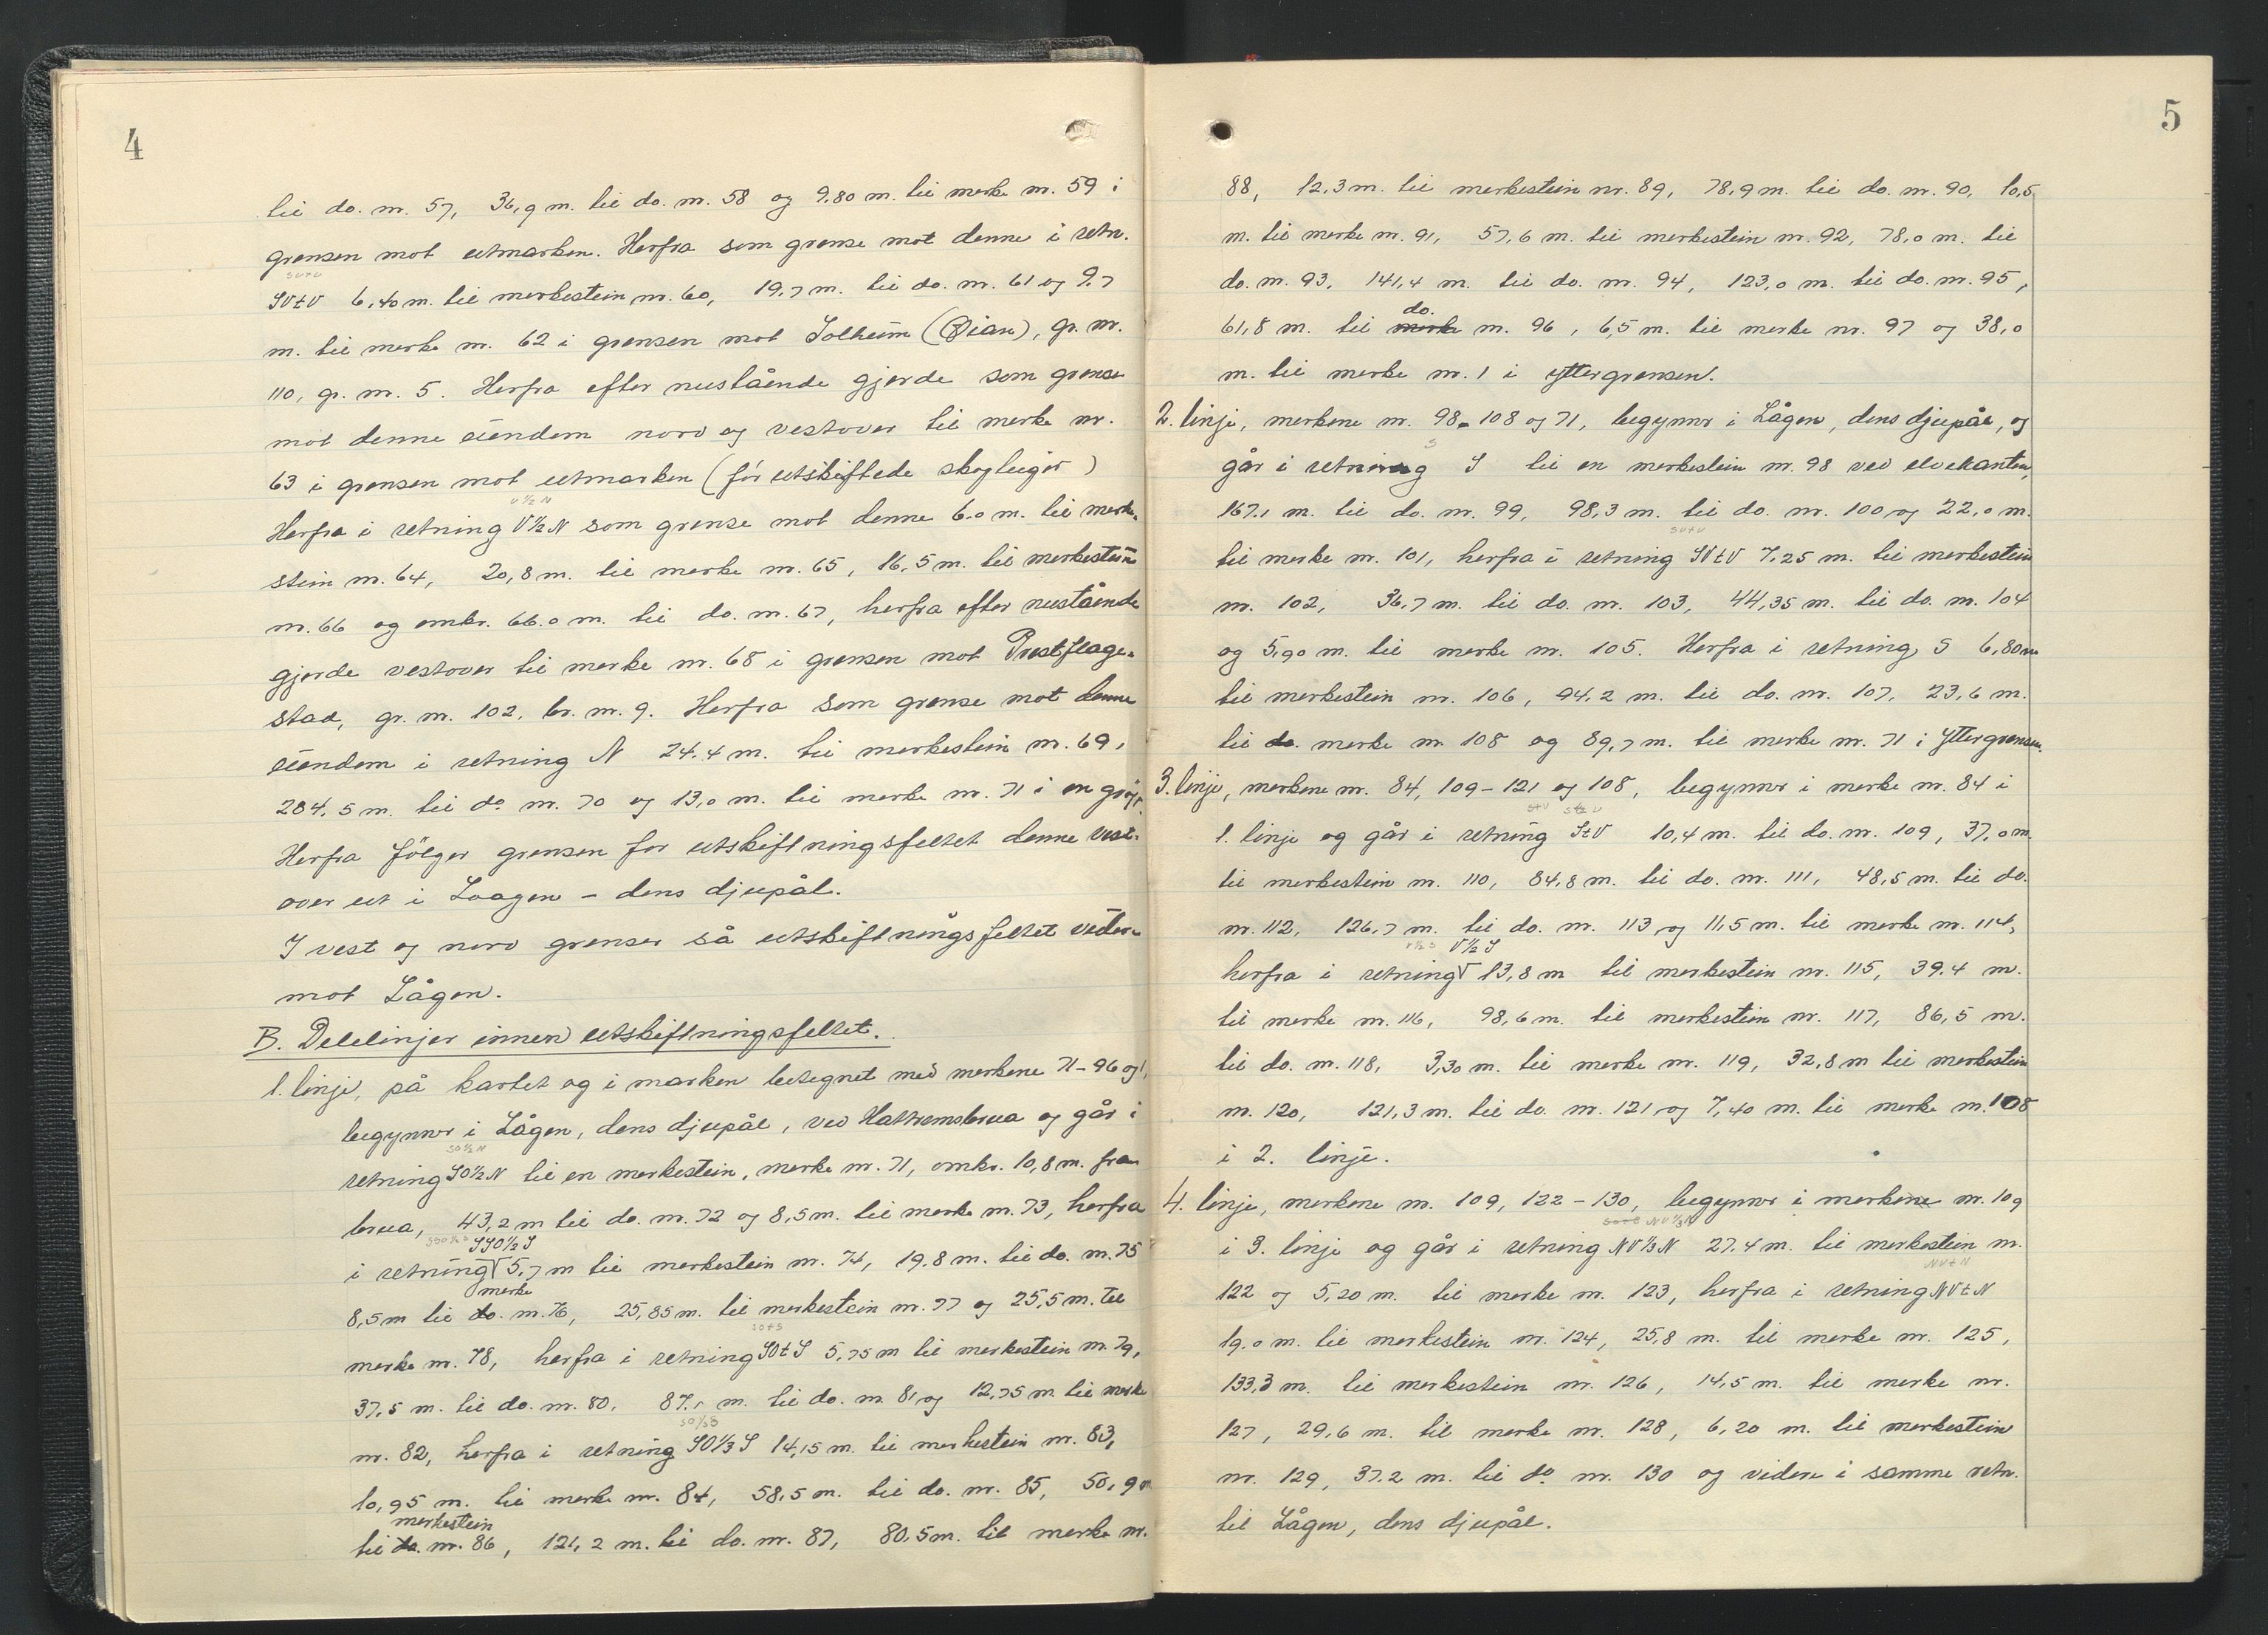 4
til do. nr. 57, 36,9 m. til do. nr. 58 og 9,80 m. til merke nr. 59 i
grensen mot utmarken. Herfra som grense mot denne i retn.
SVtV
SVtV 6,40 m. til merkestein nr. 60, 19,7 m. til do. nr. 61 og 9,7
m. til merke nr. 62 i grensen mot Solheim (Øian), gr. nr.
110, gr. nr. 5. Herfra efter nustående gjerde som grense
mot denne eiendom nord og vestover til merke nr.
63 i grensen mot utmarken (før utskiftede skogteiger)
V½N
Herfra i retning V½N som grense mot denne 6,0 m. til merke-
stein nr. 64, 20,8 m. til merke nr. 65, 16,5 m. til merkestein
nr. 66 og omkr. 66,0 m. til do. nr. 67, herfra efter nustående
gjerde vestover til merke nr. 68 i grensen mot Prestflage-
stad, gr. nr. 102, br. nr. 9. Herfra som grense mot denne
eiendom i retning N 24,4 m. til merkestein nr. 69,
284,5 m. til do nr. 70 og 13,0 m. til merke nr. 71 i en grøft.
Herfra følger grensen for utskiftningsfeltet denne vest-
over ut i Laagen – dens djupål.
I vest og nord grenser så utskiftningsfeltet videre
mot Lågen.
B. Delelinjer innen utskiftningsfeltet.
1. linje, på kartet og i marken betegnet med merkene 71–96 og 1,
begynner i Lågen, dens djupål, ved Hattremsbrua og går i
SO½N
retning SO½N til en merkestein, merke nr. 71, omkr. 10,8 m. fra
brua, 43,2 m til do. nr. 72 og 8,5 m. til merke nr. 73, herfra
SSO½S SSO½S
i retning 5,7 m til merkestein nr. 74, 19,8 m. til do. nr. 75
merke
8,5 m til do. nr. 76, 25,85 m. til merkestein nr. 77 og 25,5 m. til
SOtS
merke nr. 78, herfra i retning SOtS 5,75 m til merkestein nr. 79,
37,5 m. til do. nr. 80, 87,1 m. til do. nr. 81 og 12,75 m. til merke
SO⅓S
nr. 82, herfra i retning SO⅓S 14,15 m. til merkestein nr. 83,
10,95 m. til merke nr. 84, 58,5 m. til do. nr. 85, 50,9 m
merkestein
til do. nr. 86, 121,2 m. til do. nr. 87, 80,5 m. til merke nr.
5
88, 12,3 m. til merkestein nr. 89, 78,9 m. til do. nr. 90, 10,5
m. til merke nr. 91, 57,6 m. til merkestein nr. 92, 78,0 m. til
do. nr. 93, 141,4 m. til do. nr. 94, 123,0 m. til do. nr. 95,
do.
61,8 m. til merke nr. 96, 6,5 m. til merke nr. 97 og 38,0
m. til merke nr. 1 i yttergrensen.
2. linje, merkene nr. 98–108 og 71, begynner i Lågen, dens djupål, og
S
går i retning S til en merkestein nr. 98 ved elvekanten,
167,1 m. til do. nr. 99, 98,3 m. til do. nr. 100 og 22,0 m.
SVtV
til merke nr. 101, herfra i retning SVtV 7,25 m. til merkestein
nr. 102, 36,7 m. til do. nr. 103, 44,35 m. til do. nr. 104
og 5,90 m. til merke nr. 105. Herfra i retning S 6,80 m
til merkestein nr. 106, 94,2 m. til do. nr. 107, 23,6 m.
til do. merke nr. 108 og 89,7 m. til merke nr. 71 i yttergrensen.
3. linje, merkene nr. 84, 109–121 og 108, begynner i merke nr. 84 i
StV S½V
1. linje og går i retning StV 10,4 m. til do. nr. 109, 37,0 m.
til merkestein nr. 110, 84,8 m. til do. nr. 111, 48,5 m. til do.
nr. 112, 126,7 m. til do. nr. 113 og 11,5 m. til merke nr. 114,
V½S V½S
herfra i retning 13,8 m til merkestein nr. 115, 39,4 m.
til merke nr. 116, 98,6 m. til merkestein nr. 117, 86,5 m.
til do. nr. 118, 3,30 m. til merke nr. 119, 32,8 m til merkestein
nr. 120, 121,3 m. til do. nr. 121 og 7,40 m. til merke nr. 108
i 2. linje.
4. linje, merkene nr. 109, 122–130, begynner i merkene nr. 109
NV⅓N
i 3. linje og går i retning NV⅓N 27,4 m. til merkestein nr.
NVtN
122 og 5,20 m. til merke nr. 123, herfra i retning NVtN
19,0 m. til merkestein nr. 124, 25,8 m. til merke nr. 125,
133,3 m. til merkestein nr. 126, 14,5 m. til merke nr.
127, 29,6 m. til merke nr. 128, 6,20 m. til merkestein
nr. 129, 37,2 m. til do nr. 130 og videre i samme retn.
til Lågen, dens djupål.